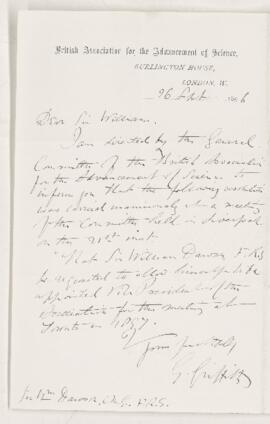 British Association for the Advancement of Science,
BURLINGTON HOUSE,
LONDON, W.
26 Sept. 1896
Dear Sir William.
I am directed by the General
Committee of the British Association
for the Advancement of Science to
inform you that the following resolution
was carried unanimously at a meeting
of the Committee held in Liverpool
on the 21st inst.
"That Sir William Dawson F.R.S
be requested to allow himself to be
appointed Vice President of the
Association for the meeting at
Toronto in 1897.
Yours faithfully
G. Griffith
Sir Wm Dawson, C.M.G. F.R.S.